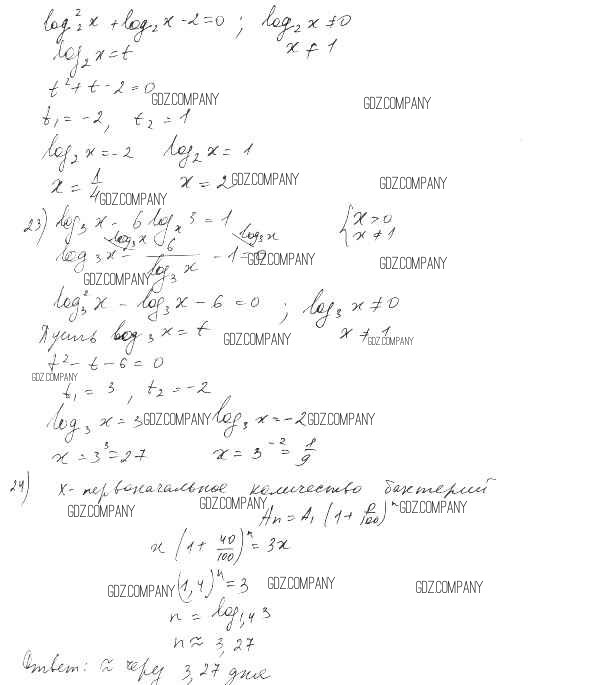 log₂²x + log₂x - 2 = 0 ; log₂x ≠ 0
log₂x = t x ≠ 1
t² + t - 2 = 0
GDZ.COMPANY GDZ.COMPANY
t₁ = -2, t₂ = 1
log₂x = -2 log₂x = 1
x = 1/4 x = 2 GDZ.COMPANY GDZ.COMPANY
GDZ.COMPANY
23) log₃x - 6 logₓ3 = 1 { x > 0
x ≠ 1
log₃x - 6/log₃x - 1 = 0 GDZ.COMPANY GDZ.COMPANY
log₃x log₃x
GDZ.COMPANY
log₃²x - log₃x - 6 = 0 ; log₃x ≠ 0
Пусть log₃x = t GDZ.COMPANY x ≠ 1 GDZ.COMPANY
t² - t - 6 = 0
GDZ.COMPANY
t₁ = 3, t₂ = -2
log₃x = 3 GDZ.COMPANY log₃x = -2 GDZ.COMPANY
x = 3³ = 27 x = 3⁻² = 1/9
24) x - первоначальное количество бактерий
GDZ.COMPANY GDZ.COMPANY Aₙ = A₁ (1 + p/100)ⁿ GDZ.COMPANY
x (1 + 40/100)ⁿ = 3x
GDZ.COMPANY (1,4)ⁿ = 3 GDZ.COMPANY GDZ.COMPANY
n = log₁,₄ 3
n ≈ 3,27
Ответ: ≈ через 3,27 дня